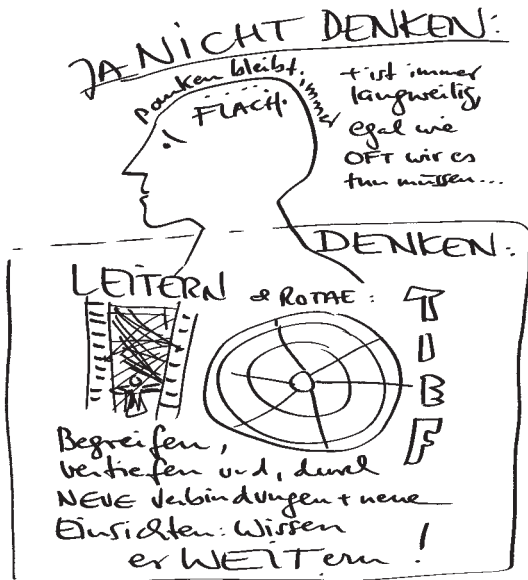 JA NICHT DENKEN:
Pauken bleibt immer
FLACH.
+ ist immer
langweilig,
egal wie
OFT wir es
tun müssen...
DENKEN:
LEITERN & ROTAE:
T
I
B
F
Begreifen,
vertiefen und, durch
NEUE Verbindungen + neue
Einsichten: Wissen
erWEITern!